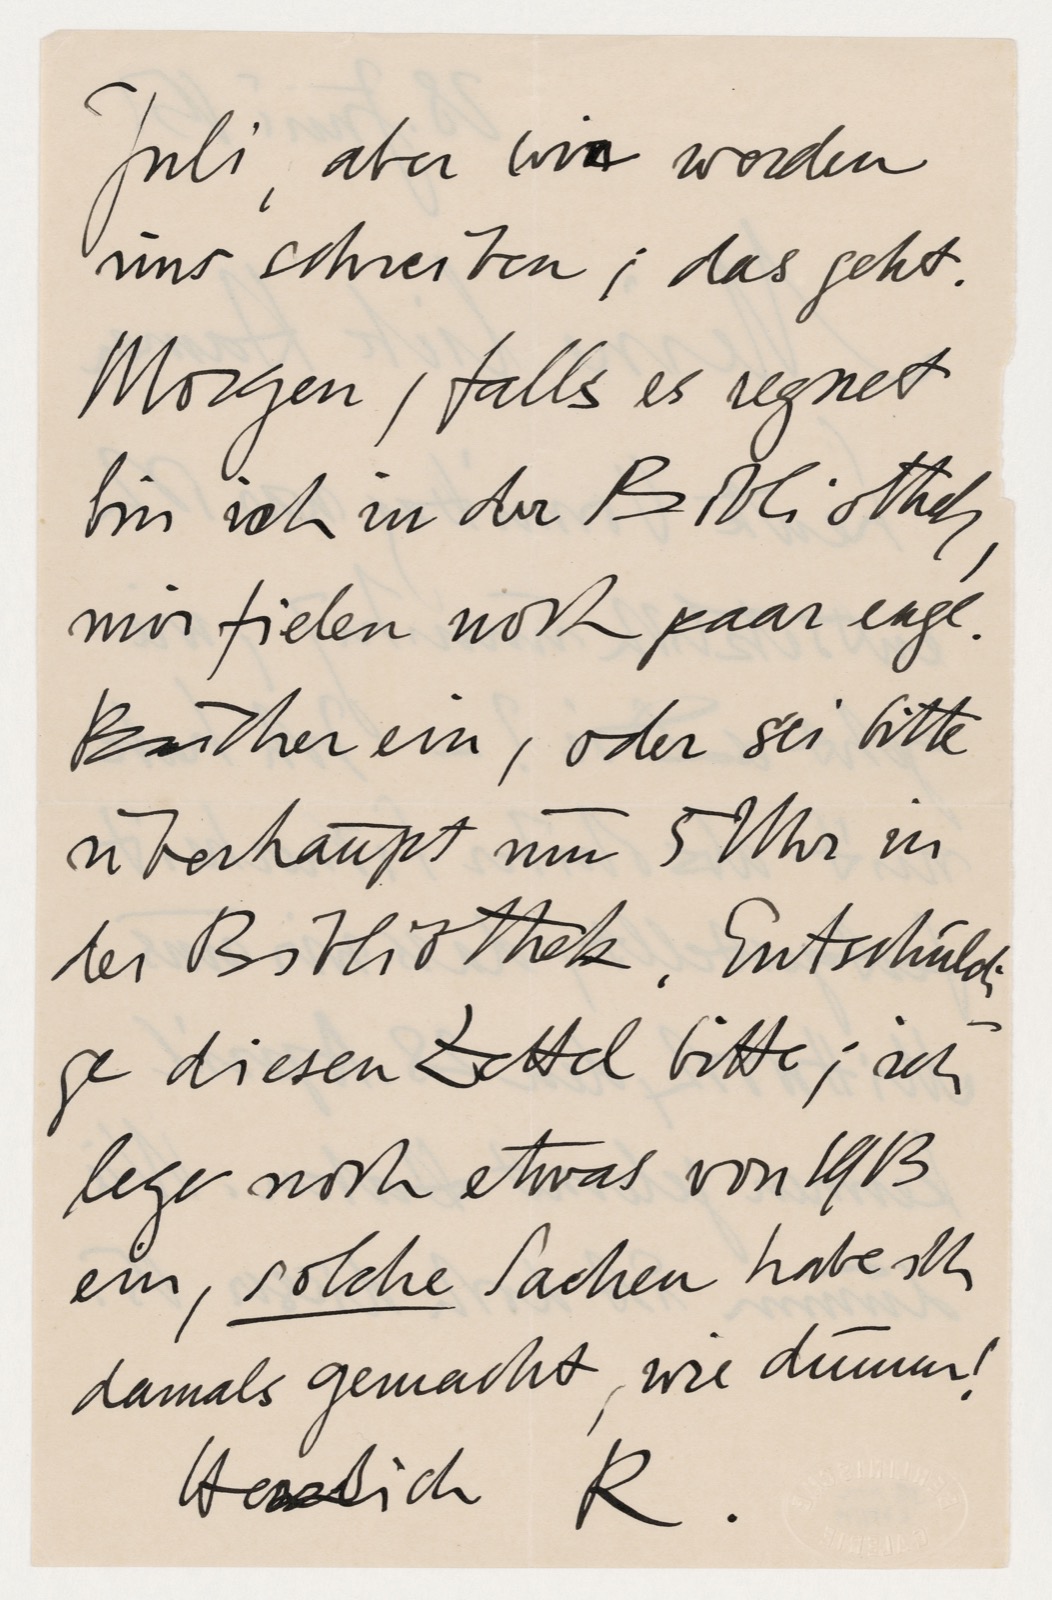 Juli, aber wir werden
uns schreiben; das geht.
Morgen, falls es regnet
bin ich in der Bibliothek,
mir fielen noch paar engl.
Bücher ein, oder sei bitte
überhaupt um 5 Uhr in
der Bibliothek. Entschuldi
ge diesen Zettel bitte; ich
lege noch etwas von 1913
ein, solche Sachen habe ich
damals gemacht, wie dumm!
Herzlich R.